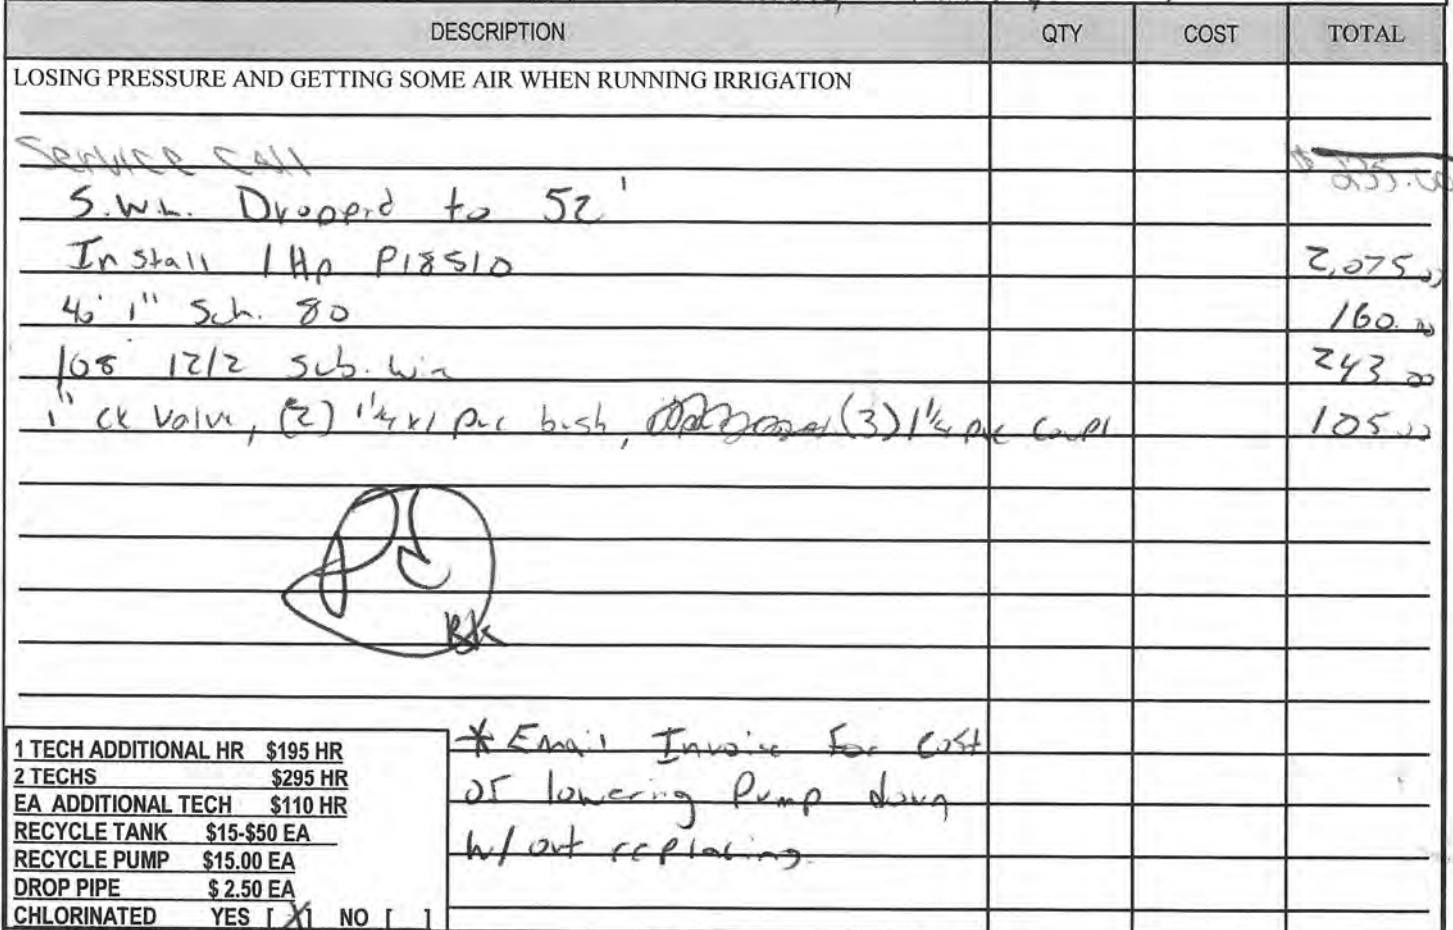 DESCRIPTION QTY COST TOTAL
LOSING PRESSURE AND GETTING SOME AIR WHEN RUNNING IRRIGATION
Service Call $ 235.00
S.W.L. Dropped to 52'
Install 1 Hp P18510 2,075.00
40' 1" Sch. 80 160.00
108' 12/2 Sub. Wire 243.00
1" ck Valve, (2) 1¼x1 pvc bush, (3) 1¼ pvc Coupl 105.00
BK
* Email Invoice For Cost
of lowering Pump down
w/out replacing.
1 TECH ADDITIONAL HR $195 HR
2 TECHS $295 HR
EA ADDITIONAL TECH $110 HR
RECYCLE TANK $15-$50 EA
RECYCLE PUMP $15.00 EA
DROP PIPE $ 2.50 EA
CHLORINATED YES [X] NO [ ]